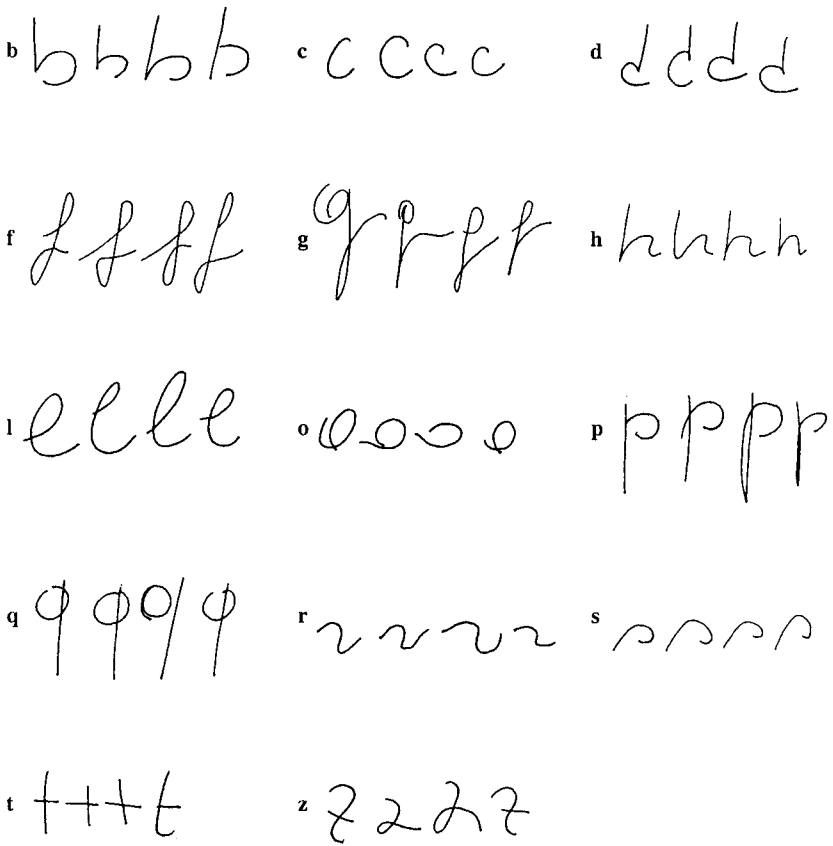 b b b b b c c c c c d d d d d
f f f f f g g g g g h h h h h
l l l l l o o o o o p p p p p
q q q q q r r r r r s s s s s
t t t t t z z z z z